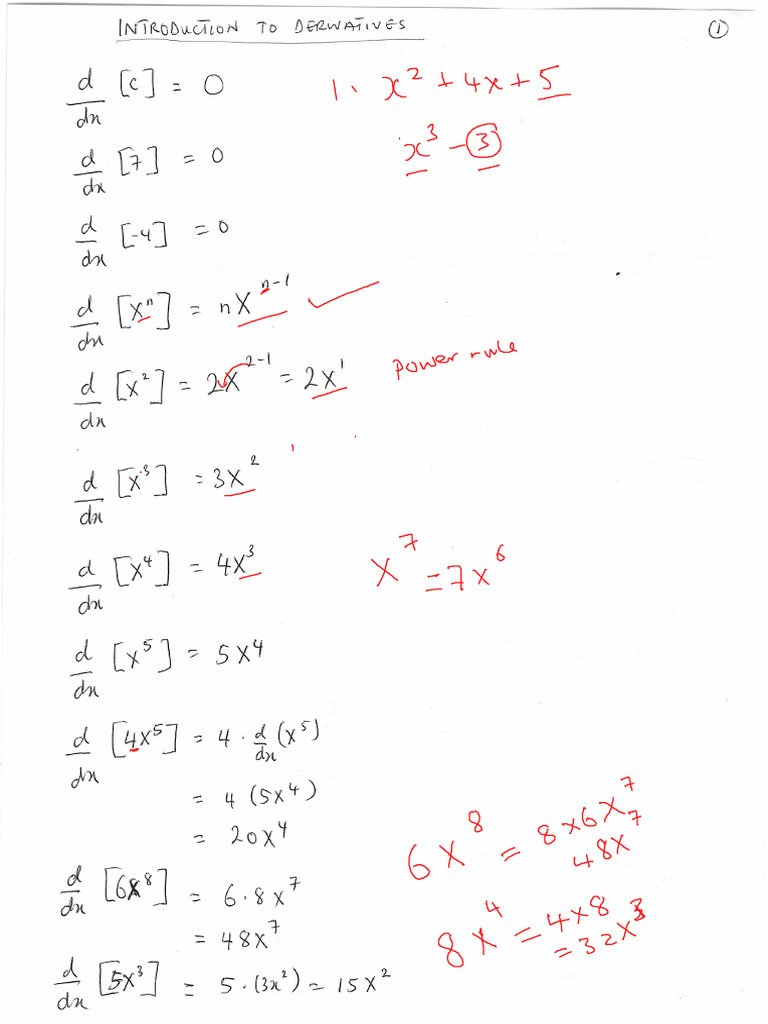 INTRODUCTION TO DERIVATIVES
①
d/dx [c] = 0
1. x² + 4x + 5
x³ - 3
d/dx [7] = 0
d/dx [-4] = 0
d/dx [xⁿ] = nxⁿ⁻¹ ✓
d/dx [x²] = 2x²⁻¹ = 2x¹
Power rule
d/dx [x³] = 3x²
d/dx [x⁴] = 4x³
x⁷ = 7x⁶
d/dx [x⁵] = 5x⁴
d/dx [4x⁵] = 4 · d/dx (x⁵)
= 4 (5x⁴)
= 20x⁴
6x⁸ = 8x6x⁷
48x⁷
d/dx [6x⁸] = 6·8x⁷
= 48x⁷
8x⁴ = 4x8
= 32x³
d/dx [5x³] = 5·(3x²) = 15x²